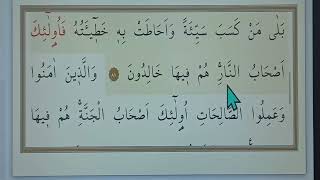 بَلٰى مَنْ كَسَبَ سَيِّئَةً وَاَحَاطَتْ بِهٖ خَطٖٓيـَٔتُهُ فَاُو۬لٰٓئِكَ
اَصْحَابُ النَّارِۚ هُمْ فٖيهَا خَالِدُونَ ﴿٨١﴾ وَالَّذٖينَ اٰمَنُوا
وَعَمِلُوا الصَّالِحَاتِ اُو۬لٰٓئِكَ اَصْحَابُ الْجَنَّةِۚ هُمْ فٖيهَا